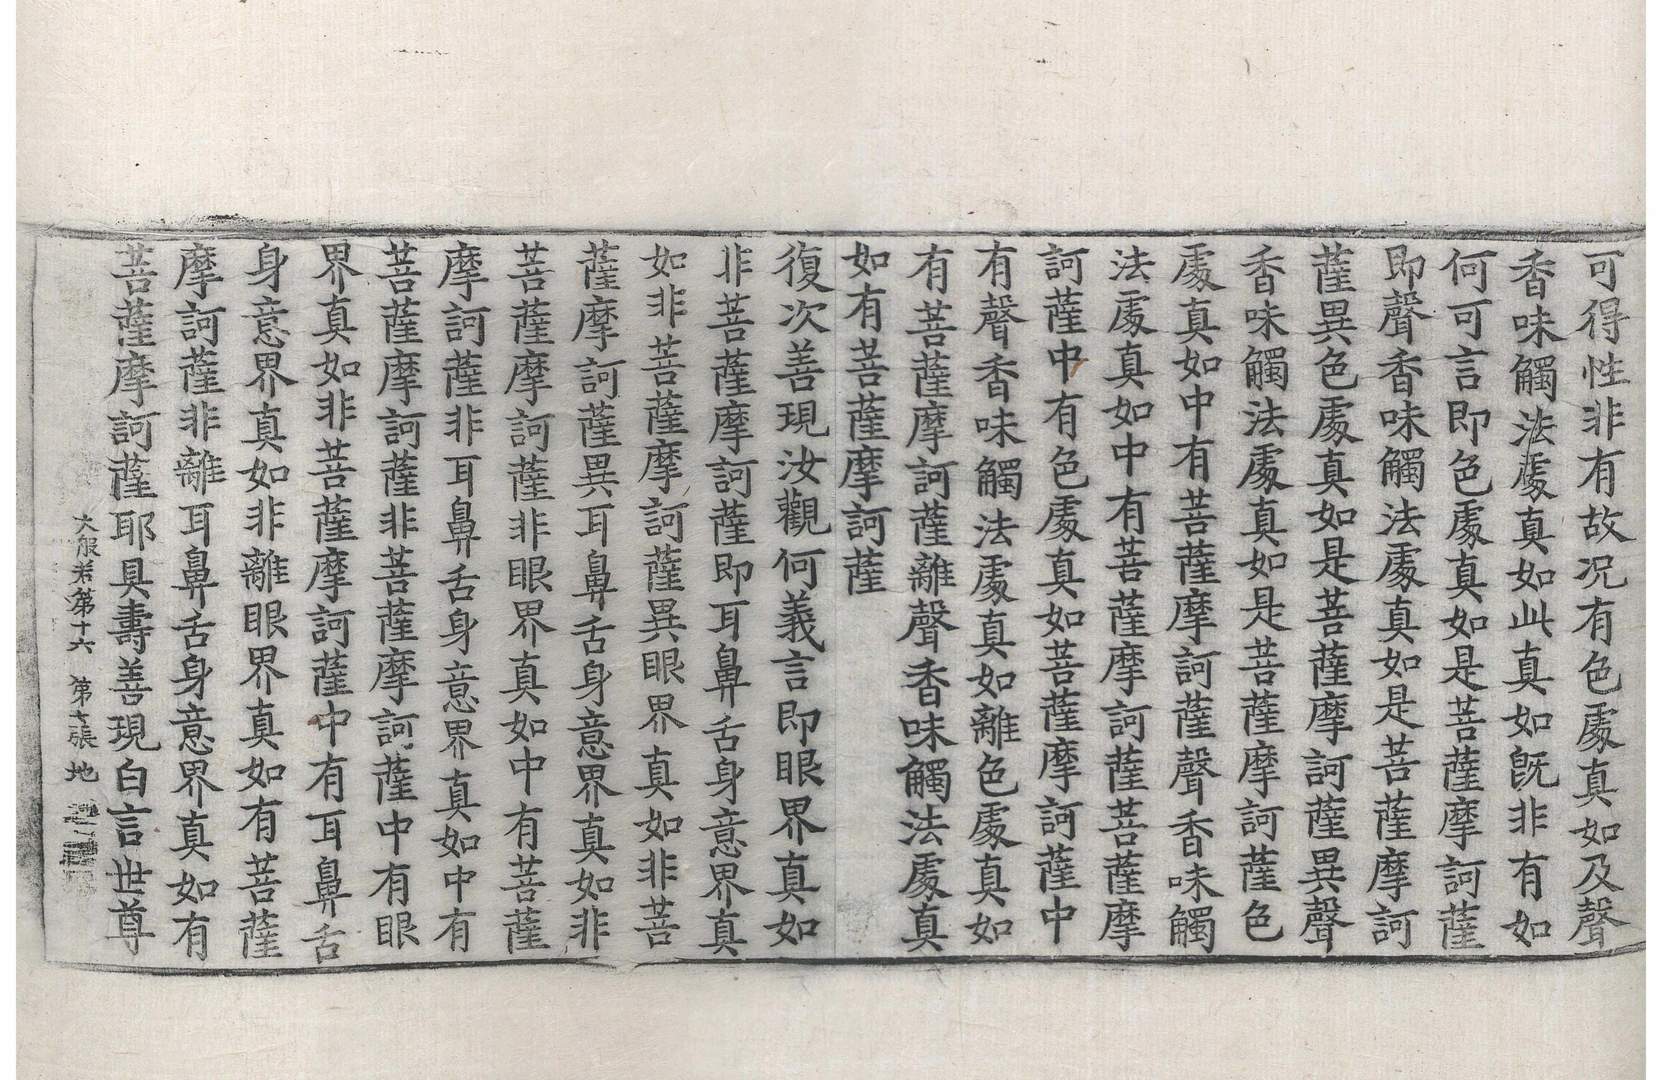 可得性非有故况有色處真如及聲
香味觸法處真如此真如旣非有如
何可言即色處真如是菩薩摩訶薩
即聲香味觸法處真如是菩薩摩訶
薩異色處真如是菩薩摩訶薩異聲
香味觸法處真如是菩薩摩訶薩色
處真如中有菩薩摩訶薩聲香味觸
法處真如中有菩薩摩訶薩菩薩摩
訶薩中有色處真如菩薩摩訶薩中
有聲香味觸法處真如離色處真如
有菩薩摩訶薩離聲香味觸法處真
如有菩薩摩訶薩
復次善現汝觀何義言即眼界真如
非菩薩摩訶薩即耳鼻舌身意界真
如非菩薩摩訶薩異眼界真如非菩
薩摩訶薩異耳鼻舌身意界真如非
菩薩摩訶薩非眼界真如中有菩薩
摩訶薩非耳鼻舌身意界真如中有
菩薩摩訶薩非菩薩摩訶薩中有眼
界真如非菩薩摩訶薩中有耳鼻舌
身意界真如非離眼界真如有菩薩
摩訶薩非離耳鼻舌身意界真如有
菩薩摩訶薩耶具壽善現白言世尊
大般若第十六 第七張 地